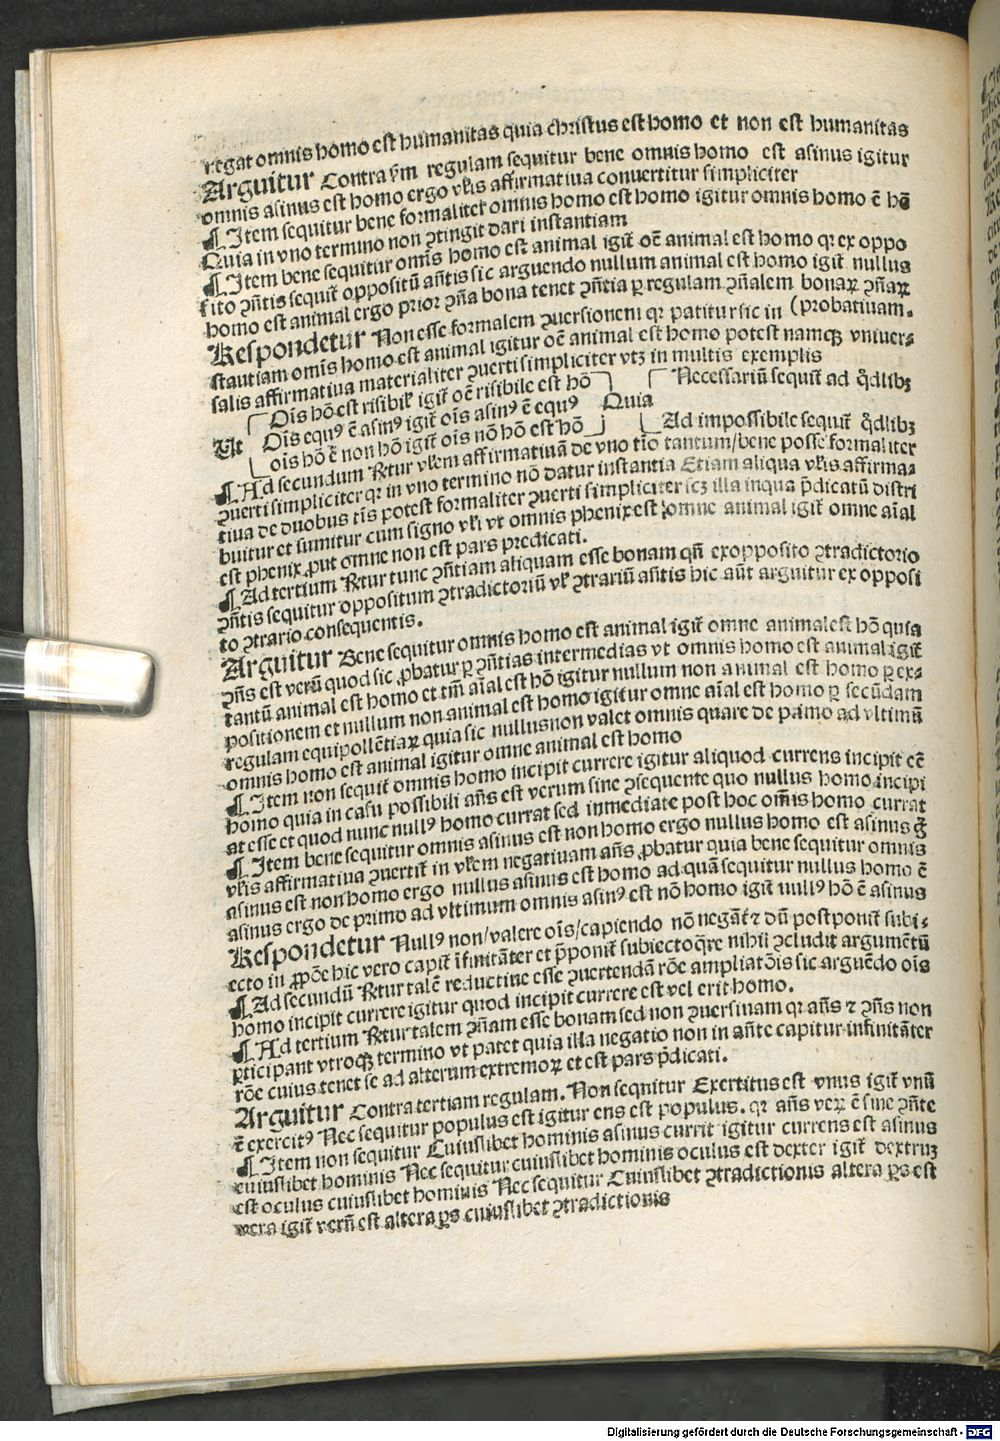 regat omnis homo est humanitas quia christus est homo et non est humanitas
Arguitur Contra v̄m regulam sequitur bene omnis homo est asinus igitur
omnis asinus est homo ergo vl̄is affirmatiua conuertitur simpliciter
¶ Item sequitur bene formaliter omnis homo est homo igitur omnis homo ē hō
Quia in vno termino non ꝯtingit dari instantiam
¶ Item bene sequitur om̄is homo est animal igit̄ oē animal est homo qꝛ ex oppo
sito ꝯñtis sequit̄ oppositū an̄tis sic arguendo nullum animal est homo igit̄ nullus
homo est animal ergo prior ꝯn̄a bona tenet ꝯn̄tia ꝑ regulam ꝯn̄alem bonaꝝ ꝯn̄aꝝ
Respondetur Non esse formalem ꝯuersionem qꝛ patitur sic in (probatiuam.
stantiam om̄is homo est animal igitur oē animal est homo potest namqꝫ vniuer⸗
salis affirmatiua materialiter ꝯuerti simpliciter vtꝫ in multis exemplis
Ois hō est risibil̄ igit̄ oē risibile est hō Necessariū sequit̄ ad q̄dlibꝫ
Vt Ois equꝰ ē asinꝰ igit̄ ois asinꝰ ē equꝰ Quia
ois hō ē non hō igit̄ ois nō hō est hō Ad impossibile sequit̄ q̄dlibꝫ
¶ Ad secundum R̄tur vl̄em affirmatiuā de vno t̄io tantum/bene posse formaliter
ꝯuerti simpliciter qꝛ in vno termino nō datur instantia Etiam aliqua vl̄is affirma⸗
tiua de duobus t̄is potest formaliter ꝯuerti simpliciter scꝫ illa in qua p̄dicatū distri
buitur et sumitur cum signo vl̄i vt omnis phenix est omne animal igit̄ omne aīal
est phenix ꝓut omne non est pars predicati.
¶ Ad tertium R̄tur tunc ꝯn̄tiam aliquam esse bonam qn̄ ex opposito ꝯtradictorio
ꝯn̄tis sequitur oppositum ꝯtradictoriū vl̄ ꝯtrariū an̄tis hic aūt arguitur ex opposi
to ꝯtrario consequentis.
Arguitur Bene sequitur omnis homo est animal igit̄ omne animal est hō quia
ꝯn̄s est verū quod sic ꝓbatur ꝑ ꝯn̄tias intermedias vt omnis homo est animal igit̄
tantū animal est homo et tm̄ aīal est hō igitur nullum non animal est homo ꝑ ex⸗
positionem et nullum non animal est homo igitur omne aīal est homo ꝑ secūdam
regulam equipollētiaꝝ quia sic nullus non valet omnis quare de primo ad vltimū
omnis homo est animal igitur omne animal est homo
¶ Item non sequit̄ omnis homo incipit currere igitur aliquod currens incipit eē
homo quia in casu possibili an̄s est verum sine ꝯsequente quo nullus homo incipi
at esse et quod nunc nullꝰ homo currat sed inmediate post hoc om̄is homo currat
¶ Item bene sequitur omnis asinus est non homo ergo nullus homo est asinus g̊
vl̄is affirmatiua ꝯuertit̄ in vl̄em negatiuam an̄s ꝓbatur quia bene sequitur omnis
asinus est non homo ergo nullus asinus est homo ad quā sequitur nullus homo ē
asinus ergo de primo ad vltimum omnis asinꝰ est nō homo igit̄ nullꝰ hō ē asinus
Respondetur Nullꝰ non/valere ois/capiendo nō negāt̄ ⁊ dū postponit̄ subi⸗
ecto in ꝓpōe hic vero capit̄ īfinitāter et p̄ponit̄ subiecto q̄re nihil ꝯcludit argumētū
¶ Ad secundū R̄tur talē reductiue esse ꝯuertendā rōe ampliatōis sic arguēdo ois
homo incipit currere igitur quod incipit currere est vel erit homo.
¶ Ad tertium R̄tur talem ꝯn̄am esse bonam sed non ꝯuersiuam qꝛ an̄s ⁊ ꝯn̄s non
ꝑticipant vtroqꝫ termino vt patet quia illa negatio non in an̄te capitur infinitāter
rōe cuius tenet se ad alterum extremoꝝ et est pars p̄dicati.
Arguitur Contra tertiam regulam. Non sequitur Exercitus est vnus igit̄ vnū
ē exercitꝰ Nec sequitur populus est igitur ens est populus. qꝛ an̄s veꝝ ē sine ꝯn̄te
¶ Item non sequitur Cuiuslibet hominis asinus currit igitur currens est asinus
cuiuslibet hominis Nec sequitur cuiuslibet hominis oculus est dexter igit̄ dextruꝫ
est oculus cuiuslibet hominis Nec sequitur Cuiuslibet ꝯtradictionis altera ꝑs est
vera igit̄ verū est altera ꝑs cuiuslibet ꝯtradictionis
Digitalisierung gefördert durch die Deutsche Forschungsgemeinschaft - DFG